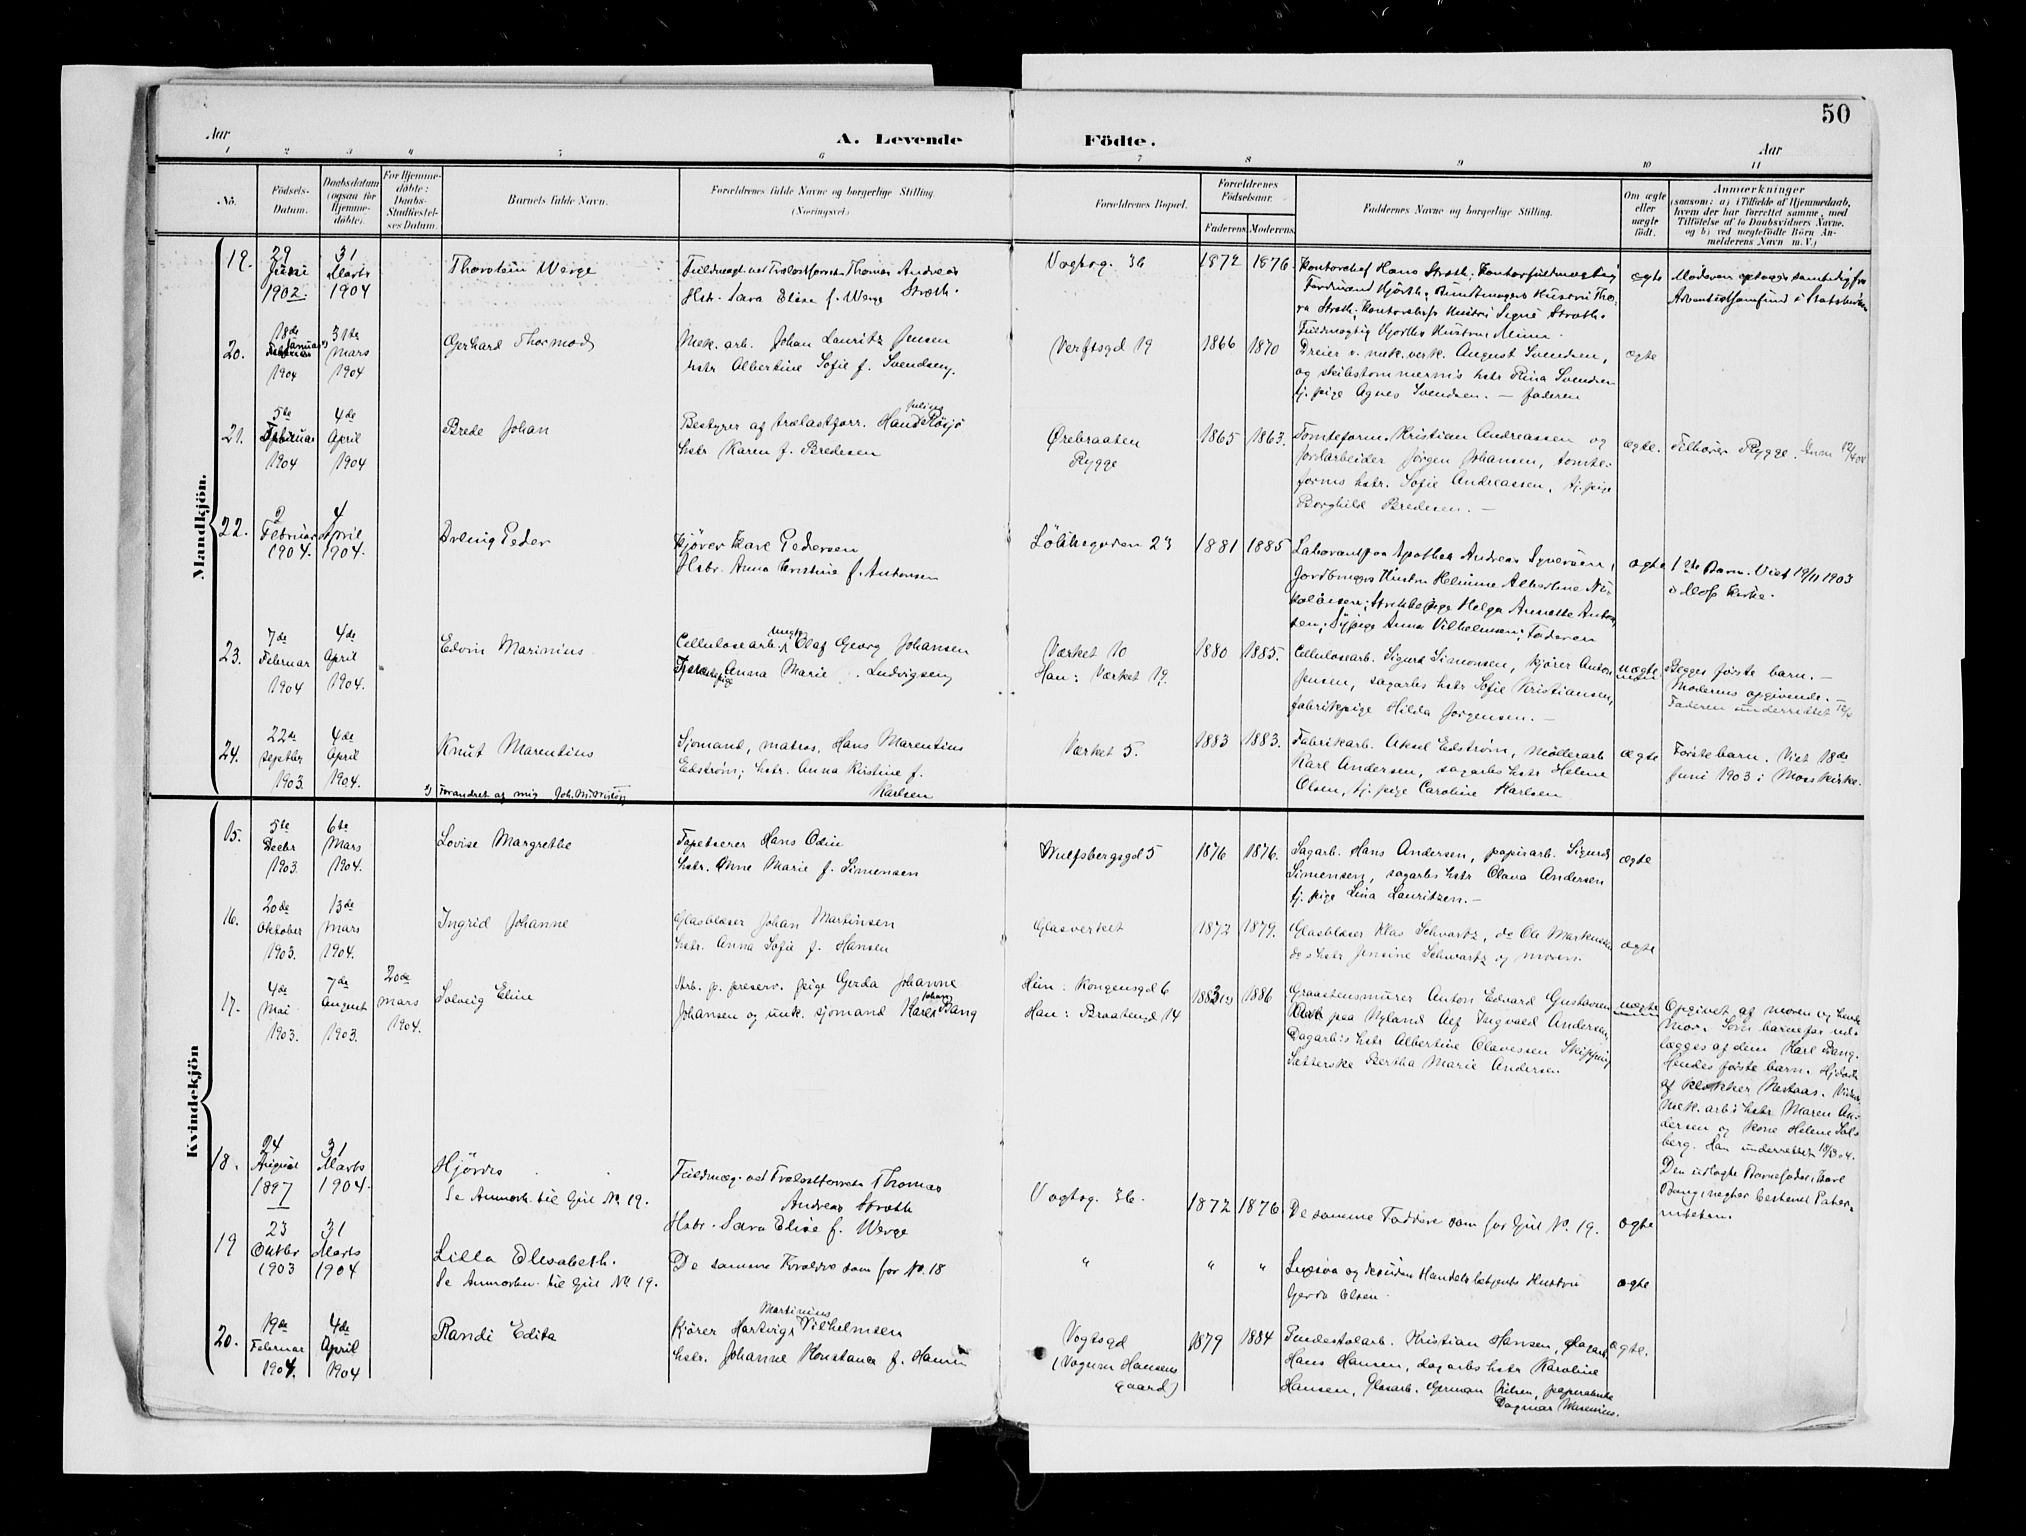 50
Aar
A. Levende
Födte.
Aar
1 2 3 4 5 6 7 8 9 10 11
No.
Födsels-
Datum.
Daabsdatum
(ogsaa for
Hjemme-
döbte).
For Hjemme-
döbte:
Daabs-
Stadfæstel-
ses Datum.
Barnets fulde Navn.
Forældrenes fulde Navne og borgerlige Stilling
(Næringsvei.)
Forældrenes Bopæl.
Forældrenes
Födselsaar.
Faderens. Moderens.
Faddernes Navne og borgerlige Stilling.
Om ægte
eller
uægte
födt.
Anmærkninger
(saasom: a) i Tilfælde af Hjemmedaab,
hvem der har forrettet samme, med
Tilföielse af to Daabsvidners Navne.
og b) ved uægtefödte Börn An-
melderens Navn m. V.)
Mandkjön.
19.
29
Juni
1902.
31
Marts
1904
Thorstein Werge
Fuldmægt. ved Trælastforretn. Thomas Andreas
Strøth.
Hstr. Sara Elise f. Werge
Vogtsg. 36
1872 1876.
Kontorchef Hans Strøth. Kontorfuldmægtig
Ferdinand Hjorth;
Strøth; Kontorchefs Hustru Signe Strøth.
Fuldmægtig Hjorths Hustru
ægte
Moderen optoges samtidig fra
Adventistsamfund i Statskirken
20.
18de
Januar 1)
1904
31te
Mars
1904
Gerhard Thormod
Mek. arb. Johan Lauritz Jensen
hstr Albertine Sofie f. Svendsen.
Verftsgd 19
1866 1870
Dreier v. mek. verk. August Svendsen,
og skibstømmerm's hstr Rina Svendsen
tj. pige Agnes Svendsen. — faderen
ægte
21.
5te
Februar
1904
4de
April
1904
Brede Johan
Julius
Bestyrer af trælastforr. Hans Røsjø
hstr Karen f. Bredesen
Ørebraaten
Rygge
1865 1863.
Tomteform. Kristian Andreassen og
Jordarbeider Jørgen Johansen, tomte-
forms hstr. Sofie Andreassen, tj. pige
Borghild Bredesen. —
ægte.
Tilhører Rygge.
22.
2
Februar
1904.
4
April
1904.
Dreng Peder
Kjører Karl Pedersen
Hstr. Anna Kristine f. Antonsen
23
1881 1885
Laborant paa Apothek Andreas Syversen,
Jordbrugers Hustru Helmine Albertine Ni-
kolaisen; Strikkepige Helga Annette Anton-
sen; Sypige Anna Vilhelmsen; Faderen
ægte
1ste Barn. Viet 19/11 1903
i Moss Kirke.
23.
7de
Februar
1904
4de
April
1904.
Edvin Marinius
Ungk.
Cellulosearb. Olaf Georg Johansen
Anna Marie Ludvigsen
Værket 10
Han: Værket 19.
1880 1885.
Cellulosearb. Sigurd Simonsen, kjører Anton
Jensen, sagarbs hstr Sofie Kristiansen,
fabrikpige Hilda Jørgensen. —
uægte
Begges første barn. —
Moderens opgivende. —
Faderen underrettet
24.
22de
Septbr
1903.
4de
April
1904.
Knut Marentius
Sjømand, matros, Hans Marentius
Edstrøm; hstr. Anna Kirstine f.
Karlsen
Værket 5.
1883 1883.
Fabrikarb. Aksel Edstrøm, møllerarb
Karl Andersen, sagarbs hstr Helene
Olsen, tj. pige Caroline Karlsen
ægte
Første barn. Viet 18de
Juni 1903 i Moss kirke.
1) Forandret af mig
Kvindekjön
15.
5te
Decbr
1903.
6te
Mars
1904.
Lovise Margrethe
Tapetserer Hans Odin
hstr. Anne Marie f. Simensen
Wulfsbergsgd 5
1876 1876.
Sagarb. Hans Andersen, papirarb. Sigurd
Simensen, sagarbs hstr Olava Andersen
tj. pige Lina Lauritzen. —
ægte
16.
20de
Oktober
1903.
13de
Mars
1904.
Ingrid Johanne
Glasblæser Johan Martinsen
hstr. Anna Sofie f. Hansen
Glasverket
1872 1879.
Glasblæser Klas Schwartz, do Ola
do's hstr Jensine Schwartz og moren.
ægte
17.
4de
Mai
1903.
7de
August
1903.
20de
mars
1904.
Solveig Eline
Arb. p. preserv. pige Gerda Johanne
Johansen og unk. sjømand Karl Johan Bang
Hun: Kongensgd 6
Han: Braatengd 14
1883 1886
Graastensmurer Anton Edvard Gustavsen
paa Nyland Alf Ingvald Andersen,
Dagarb's hstr Albertine Olavessen
Bertha Marie Andersen
uægte
Opgivet af moren og hendes
Mor. Som barnefar ud-
lægges af dem Karl Bang.
Hendes første barn. Hjdøbt
af klokker Nestaas.
Mek. arb's hstr Maren An-
dersen og kone Helene Sol-
berg. Han underrettet
Den udlagte Barnefader, Karl
Bang, negter bestemt Pater-
niteten.
18.
24
August
1897
31
Marts
1904.
Hjørdis
Se Anmærk. til Gut No. 19.
Fuldmæg. ved Trælastforretn. Thomas
Andreas Strøth
Hstr. Sara Elise f. Werge
Vogtsg. 36.
1872 1876.
De samme Faddere som for Gut No. 19.
ægte
19
23
Oktbr
1903
31
Marts
1904
Lilla Elisabeth.
Se Anmærkn. til Gut No. 19.
De samme Forældre som for No. 18
" " "
Ligesaa og desuden Handelsbetjents Hustru
Gerda Olsen.
ægte
20.
19de
Februar
1904.
4de
April
1904
Randi Edita
Martinius
Kjører Hartvig Vilhelmsen
hstr. Johanne Konstance f. Hansen
Vogtsgd
(Vognm Hansens
gaard)
1879 1884
Kristian Hansen,
Hans Hansen, dagarbs hstr Karoline
Hansen, Glasarb. Herman Nilsen,
Dagmar
ægte.